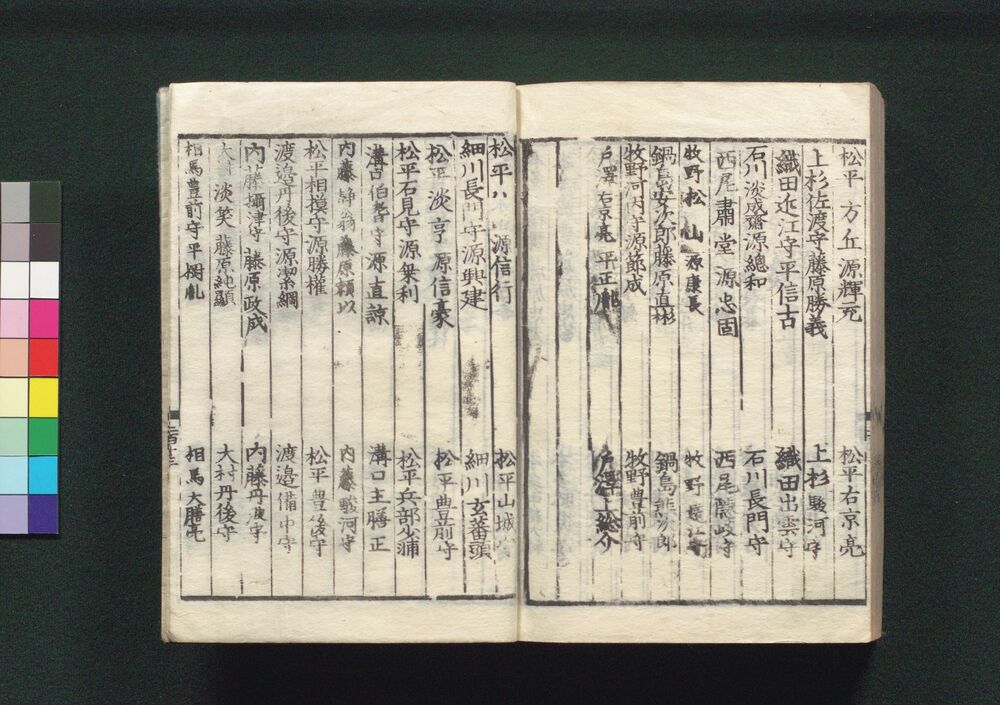 松平方丘源輝充 松平右京亮
上杉佐渡守藤原勝義 上杉駿河守
織田近江守平信古 織田出雲守
石川淡成齋源總和 石川長門守
西尾肅堂源忠固 西尾隱岐守
牧野松山源康長 牧野
鍋島安次郎藤原直彬 鍋島熊次郎
牧野河内守源節成 牧野豊前守
戸澤右京亮平正 戸澤上総介
松平 源信行 松平山城
細川長門守源興建 細川玄蕃頭
松平淡亭源信豪 松平豊前守
松平石見守源乗利 松平兵部少浦
溝口伯耆守源直諒 溝口主膳正
内藤静翁藤原頼以 内藤駿河守
松平相摸守源勝權 松平豊後守
渡邉丹後守源潔綱 渡邉備中守
内藤攝津守藤原政成 内藤丹波守
大村淡笑藤原純顯 大村丹後守
相馬豊前守平樹胤 相馬大膳亮